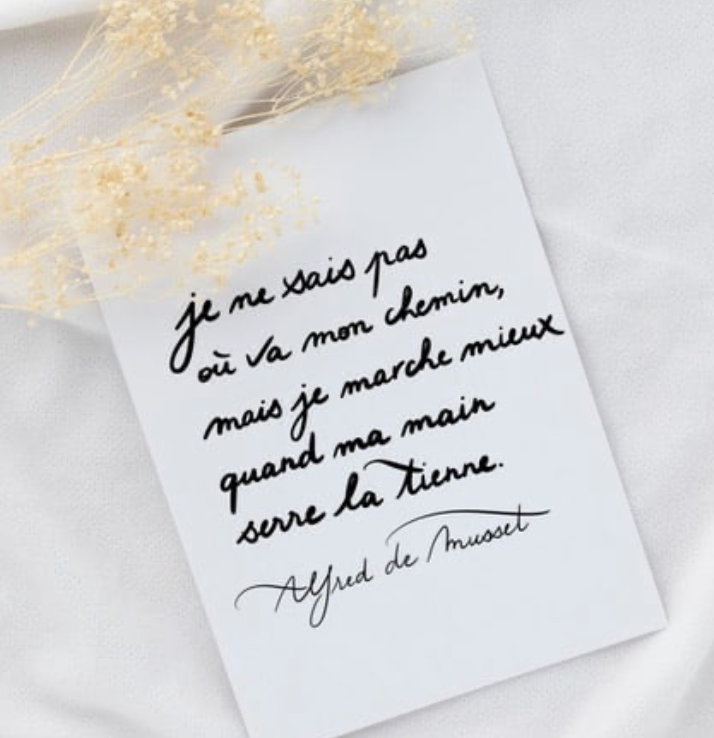 je ne sais pas
où va mon chemin,
mais je marche mieux
quand ma main
serre la tienne.
Alfred de Musset